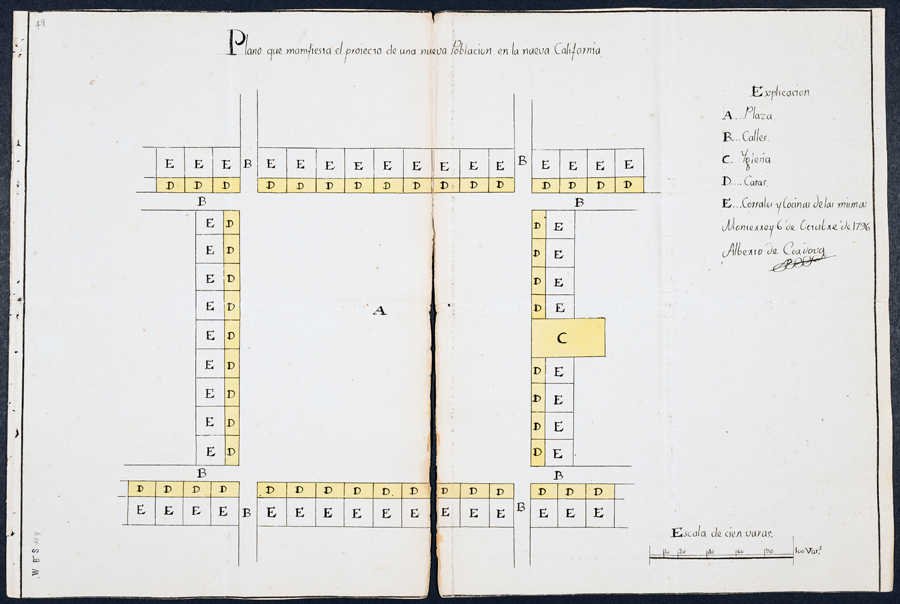 49
Plano que manifiesta el proiecto de una nueva Poblacion en la nueva California
Explicacion
A... Plaza
B... Calles.
C. Yglesia
D.... Casas.
E... Corrales y Cocinas de las mismas
Monterrey 6 de Octubre de 1796
Alberto de Cordova
E E E B E E E E E E E E E B E E E E
D D D D D D D D D D D D D D D D
B B
E D D E
E D D E
E D D E
E D D E
A
E D C
E D D E
E D D E
E D D E
E D D E
B B
D D D D D D D D D D D D D D D D
E E E E B E E E E E E E E E B E E E
Escala de cien varas.
10 20 40 60 80 100 Vars.
W. B. S.